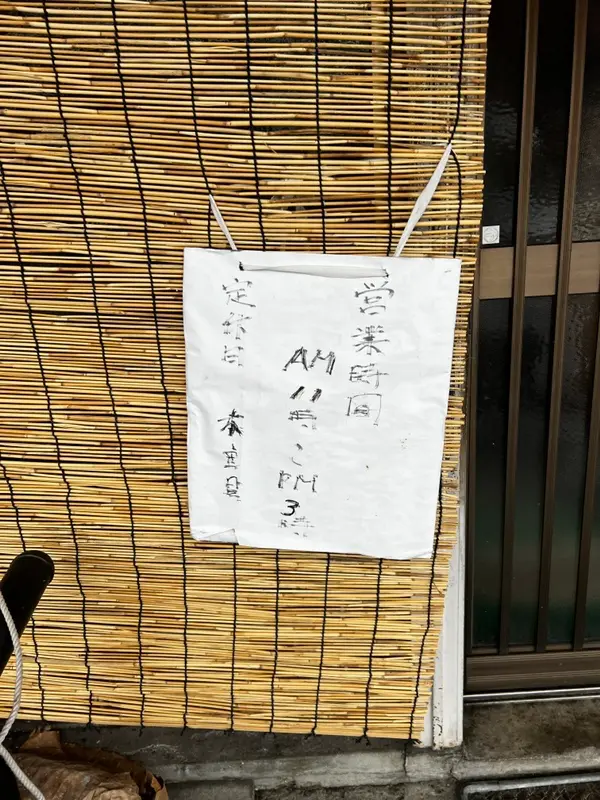 営業時間
AM11時〜PM3時
定休日 木曜日